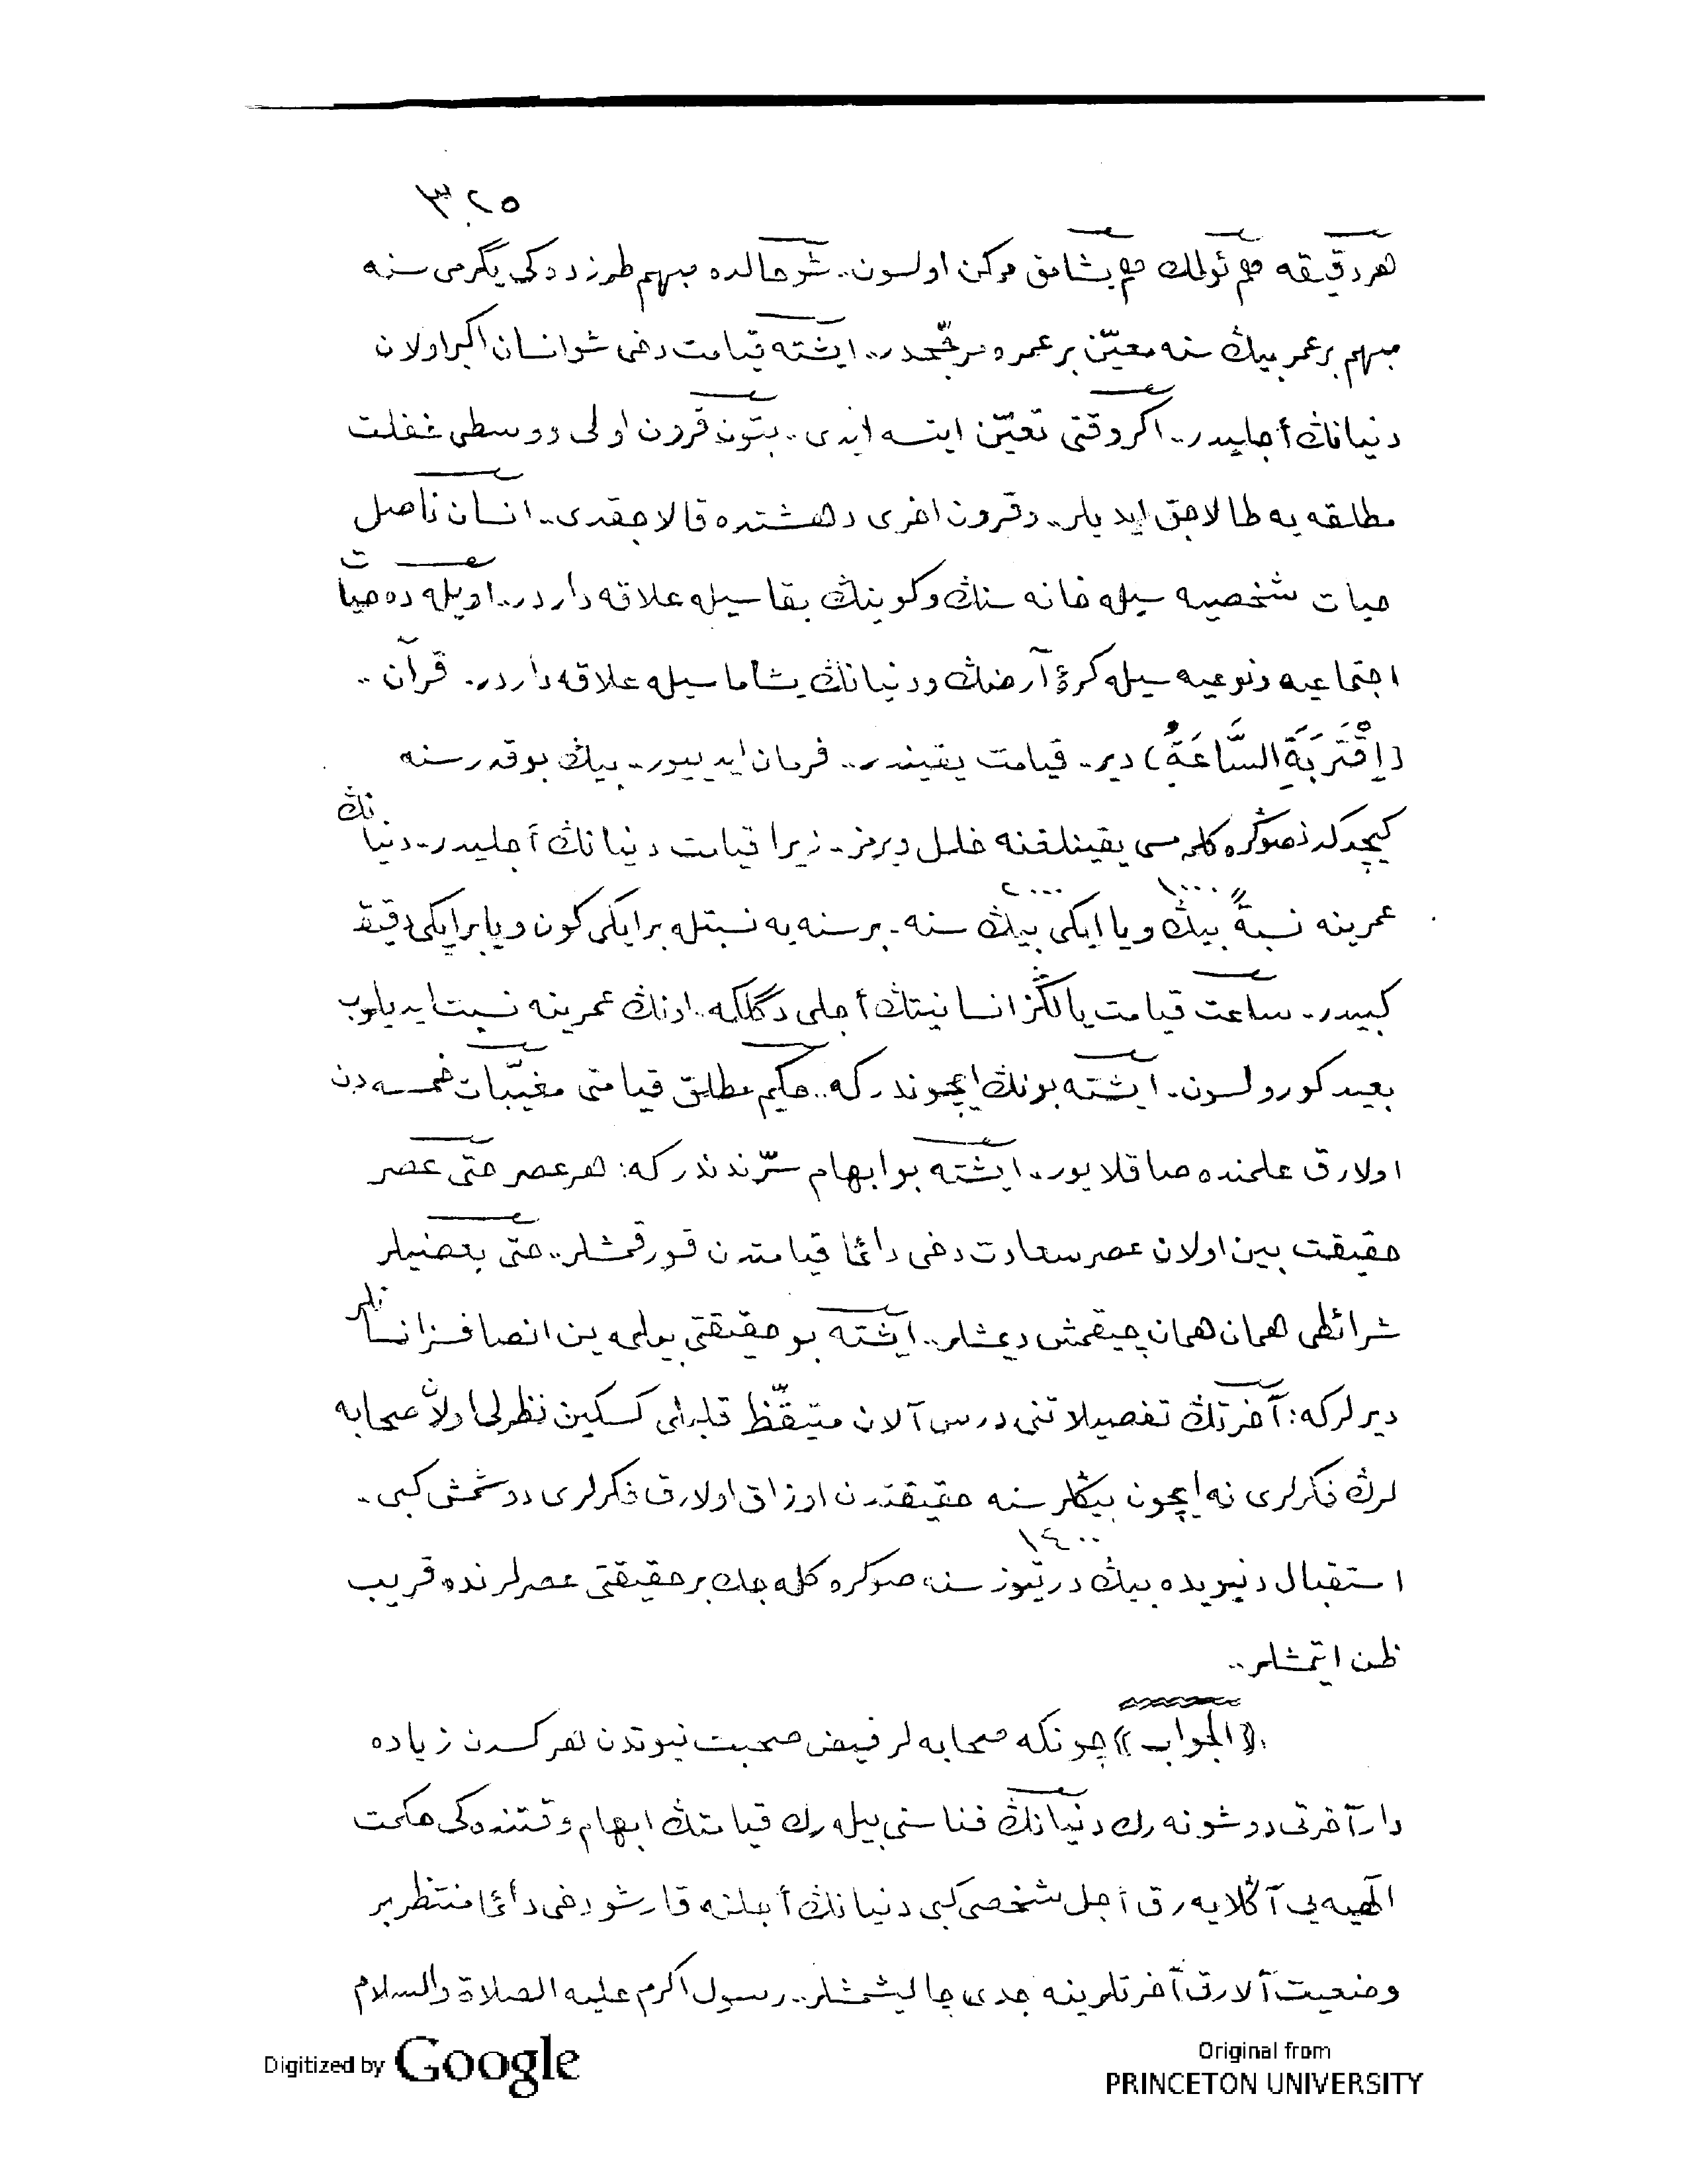 ٣٢٥
هر دقیقه هم ئولمك هم یشامق ممكن اولسون.. شو حالده مبهم طرزده‌كی یگرمی سنه
مبهم بر عمر بیڭ سنه معیّن بر عمره مرجّحدر.. ایشته قیامت دخی شو انسان اكبر اولان
دنیانڭ أجلیدر.. اگر وقتی تعیّن ایتسه ایدی.. بتون قرون اولی و وسطی غفلت
مطلقه یه طالاجق ایدیلر.. وقرون اخری دهشتده قالاجقدی.. انسان ناصل
حیات شخصیه سیله خانه سنڭ و كوینڭ بقاسیله علاقه داردر.. اویله ده حیات
اجتماعیه ونوعیه سیله كرۀ آرضڭ ودنیانڭ یشاماسیله علاقه داردر. قرآن ..
(اِقْتَرَبَةِ السَّاعَةُ) دیر. قیامت یقیندر.. فرمان ایدییور.. بیڭ بوقدر سنه
كیچدكدنصوڭره كلمه مسی یقینلغنه خلل ویرمز. زیرا قیامت دنیانڭ أجلیدر. دنیانڭ
عمرینه نسبةً بیڭ ١٠٠٠ ویا ایكی بیڭ ٢٠٠٠ سنه. بر سنه یه نسبتله بر ایكی كون ویا بر ایكی دقیقه
كبیدر. ساعت قیامت یالڭز انسانیتڭ أجلی دگلكه. اونڭ عمرینه نسبت ایدیلوب
بعید كورولسون. ایشته بونڭ ایچوندر كه.. حكیم مطلق قیامتی مغیّبات خمسه دن
اولارق علمنده صاقلایور. ایشته بو ابهام سرّندندر كه: هر عصر حتی عصر
حقیقت بین اولان عصر سعادت دخی دائما قیامتدن قورقمشلر.. حتی بعضیلر
شرائطی همان همان چیقمش دیمشلر.. ایشته بو حقیقتی بیلمه ین انصافسز انسانلر
دیرلركه: آخرتڭ تفصیلاتنی درس آلان متیقّظ قلبلی كسكین نظرلی اولان صحابه
لرڭ فكرلری نه ایچون بیڭلر سنه حقیقتدن اوزاق اولارق فكرلری دوشمش كبی.
استقبال دنیویده بیڭ درتیوز ١٤٠٠ سنه صوكره كله جك بر حقیقتی عصرلرنده قریب
ظن ایتمشلر..
((الجواب)) چونكه صحابه لر فیض صحبت نبوتدن هركسدن زیاده
دار آخرتی دوشونه رك دنیانڭ فناسنی بیله رك قیامتڭ ابهام وقتنده‌كی حكمت
الٓهیه یی آڭلایه رق أجل شخصی كبی دنیانڭ أجلنه قارشو دخی دائما منتظر بر
وضعیت آلارق آخرتلرینه جدی چالیشمشلر.. رسول اكرم علیه الصلاة والسلام
Digitized by Google
Original from
PRINCETON UNIVERSITY